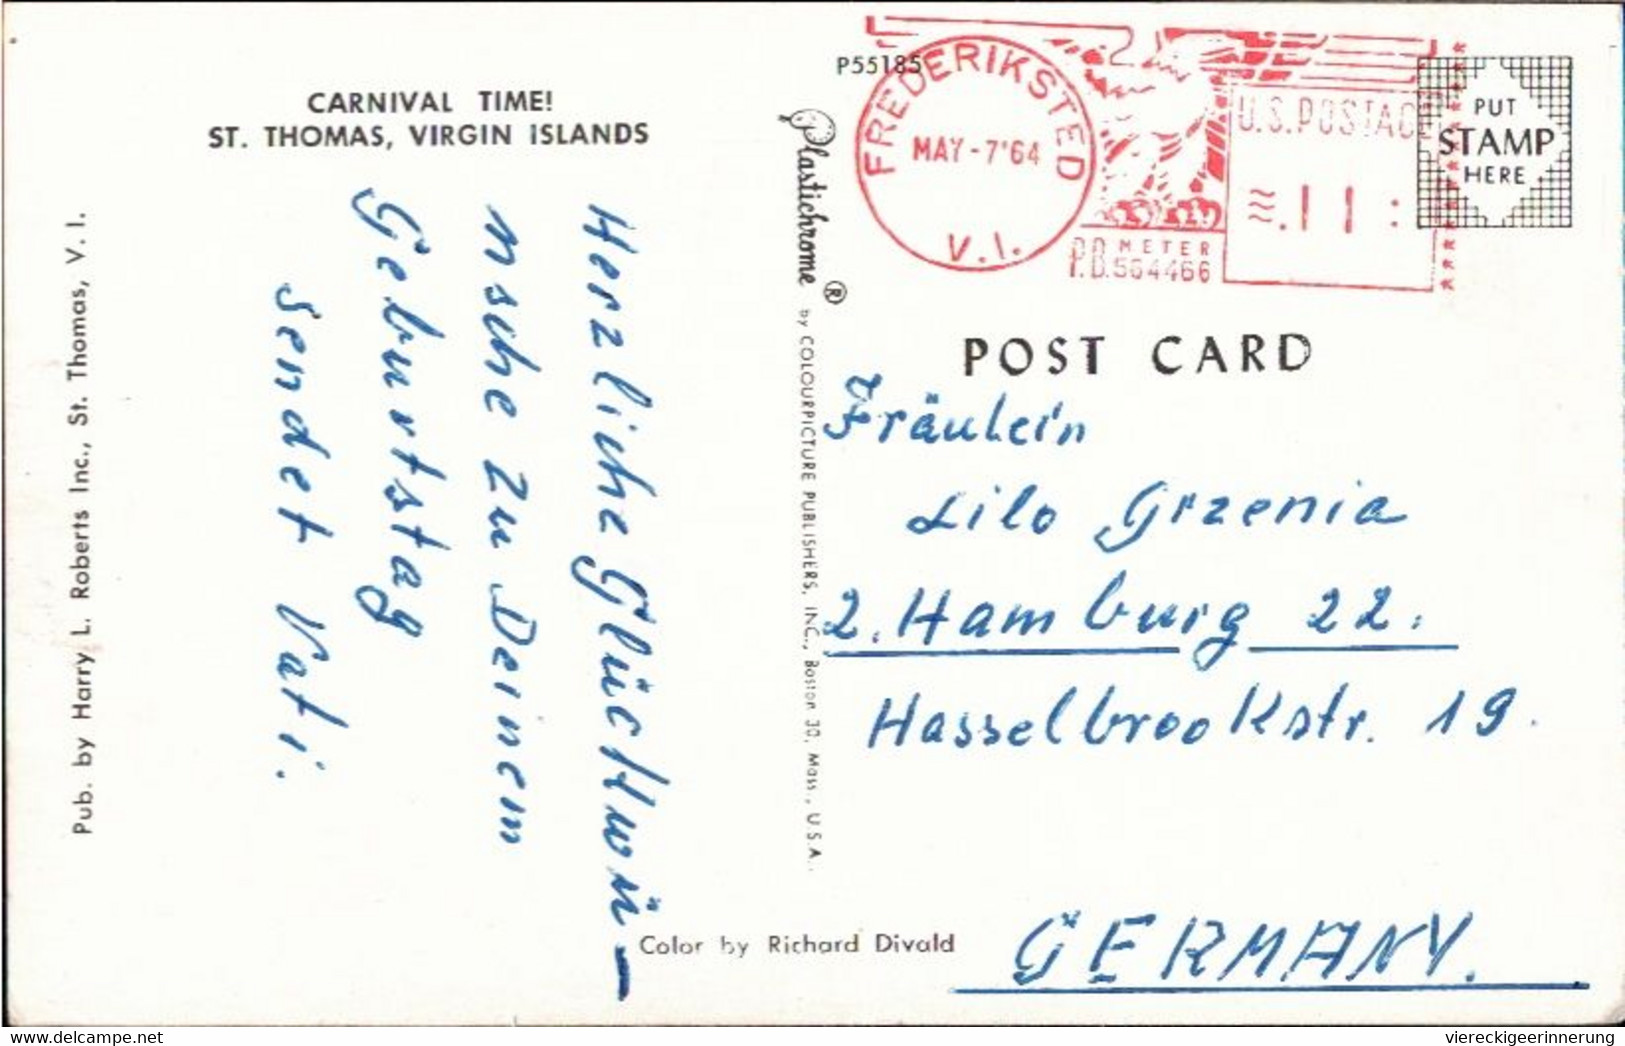 CARNIVAL TIME!
ST. THOMAS, VIRGIN ISLANDS
Pub. by Harry L. Roberts Inc., St. Thomas, V. I.
Herzliche Glückwü-
nsche zu Deinem
Geburtstag
sendet Vati.
Plastichrome ® by COLOURPICTURE PUBLISHERS, INC., Boston 30, Mass., U.S.A.
P55185
FREDERIKSTED
MAY-7'64
V.I.
U.S. POSTAGE
≋.11:
P.B. METER
564466
PUT
STAMP
HERE
POST CARD
Fräulein
Lilo Grzenia
2. Hamburg 22.
Hasselbrookstr. 19.
GERMANY.
Color by Richard Divald
www.delcampe.net
viereckigeerinnerung